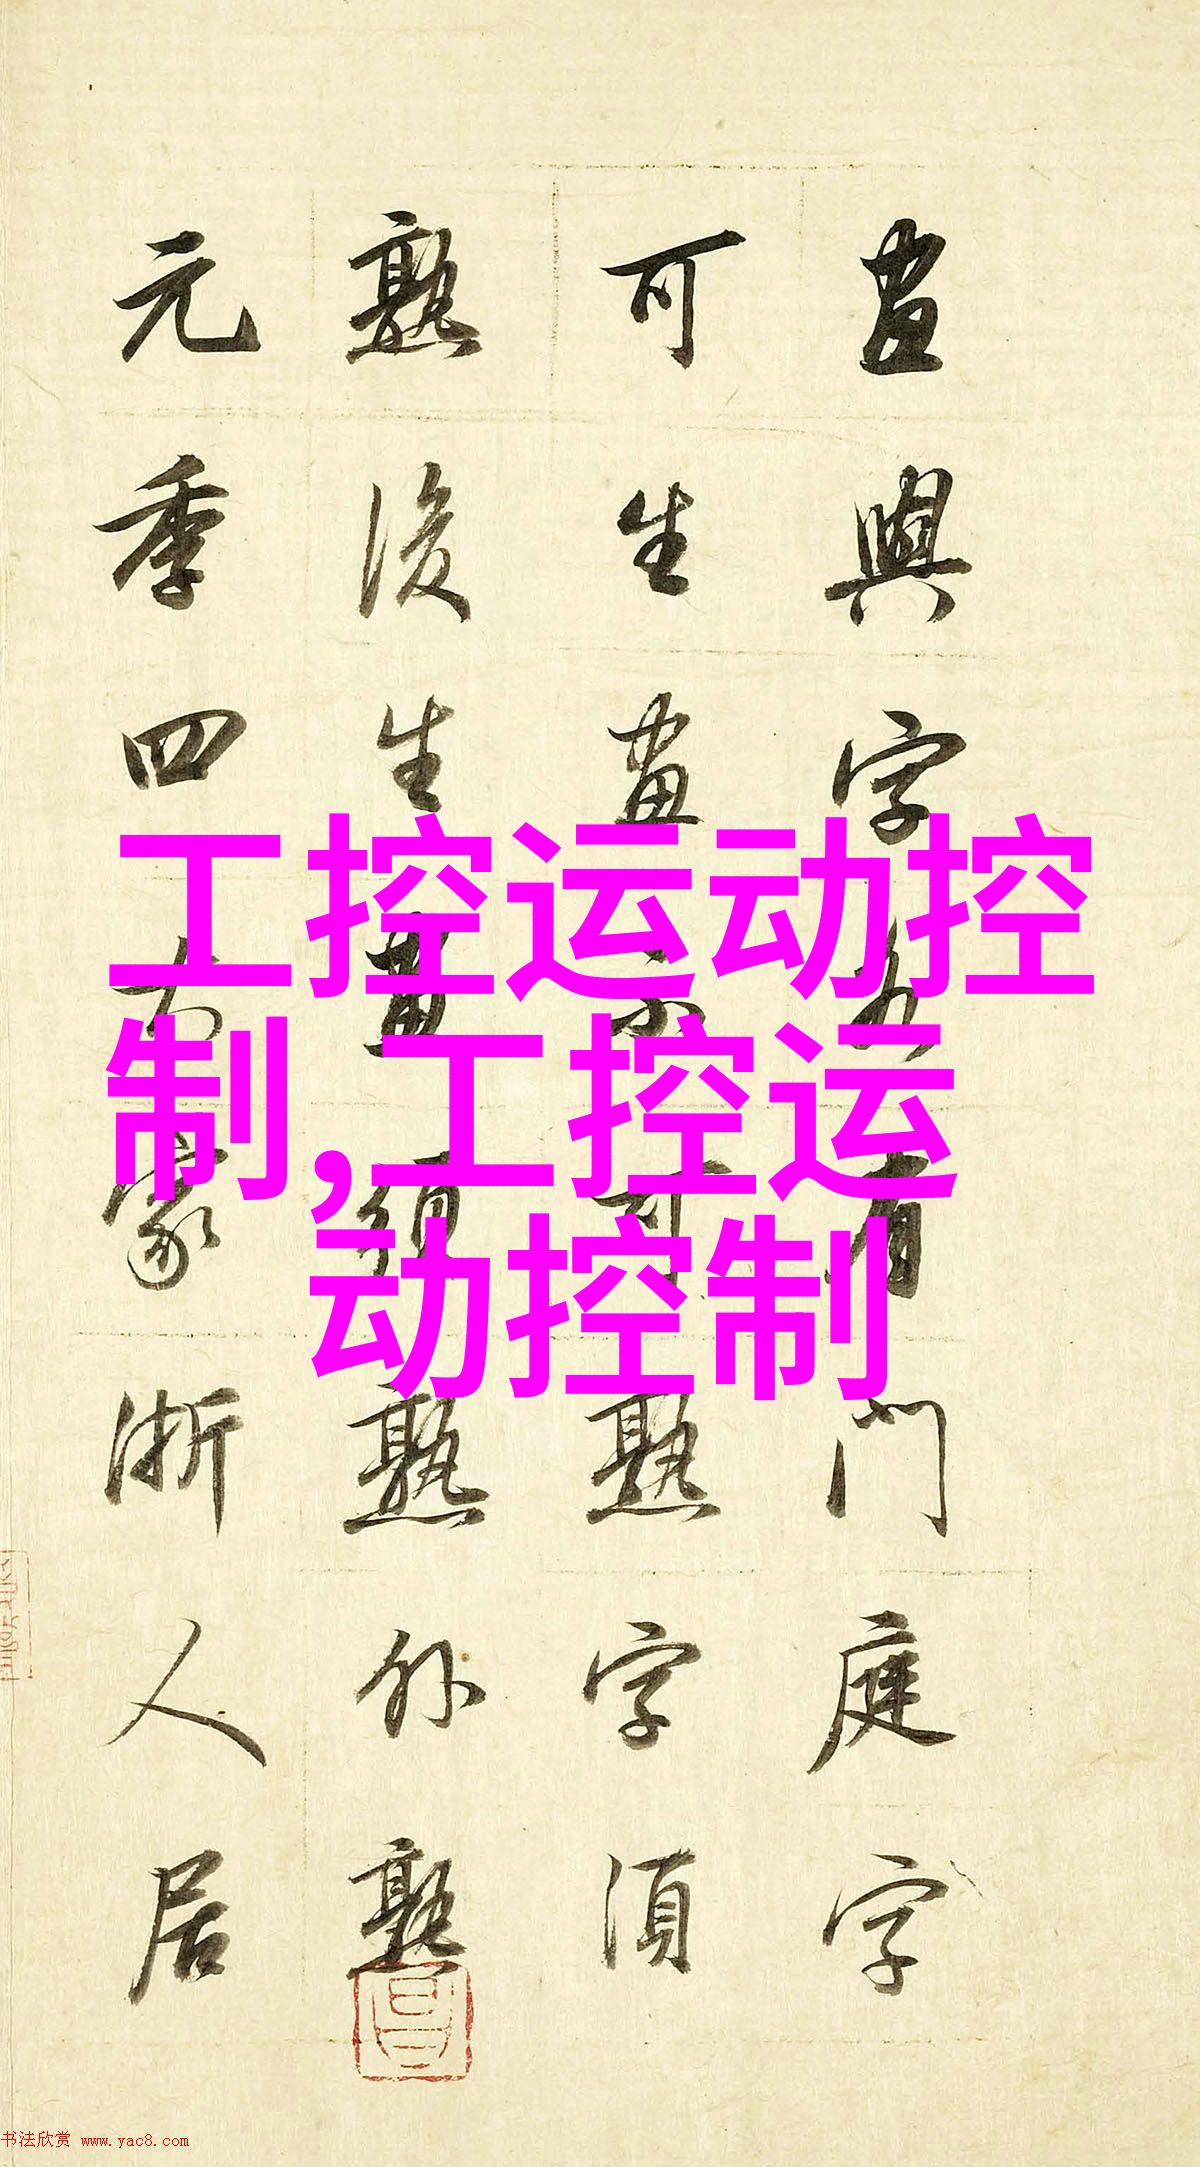 畫與字各有門庭字
可生畫不可熟字須
熟後生畫須熟外熟
元季四大家浙人居
工控运动控
制,工控运
动控制
书法欣赏 www.yac8.com